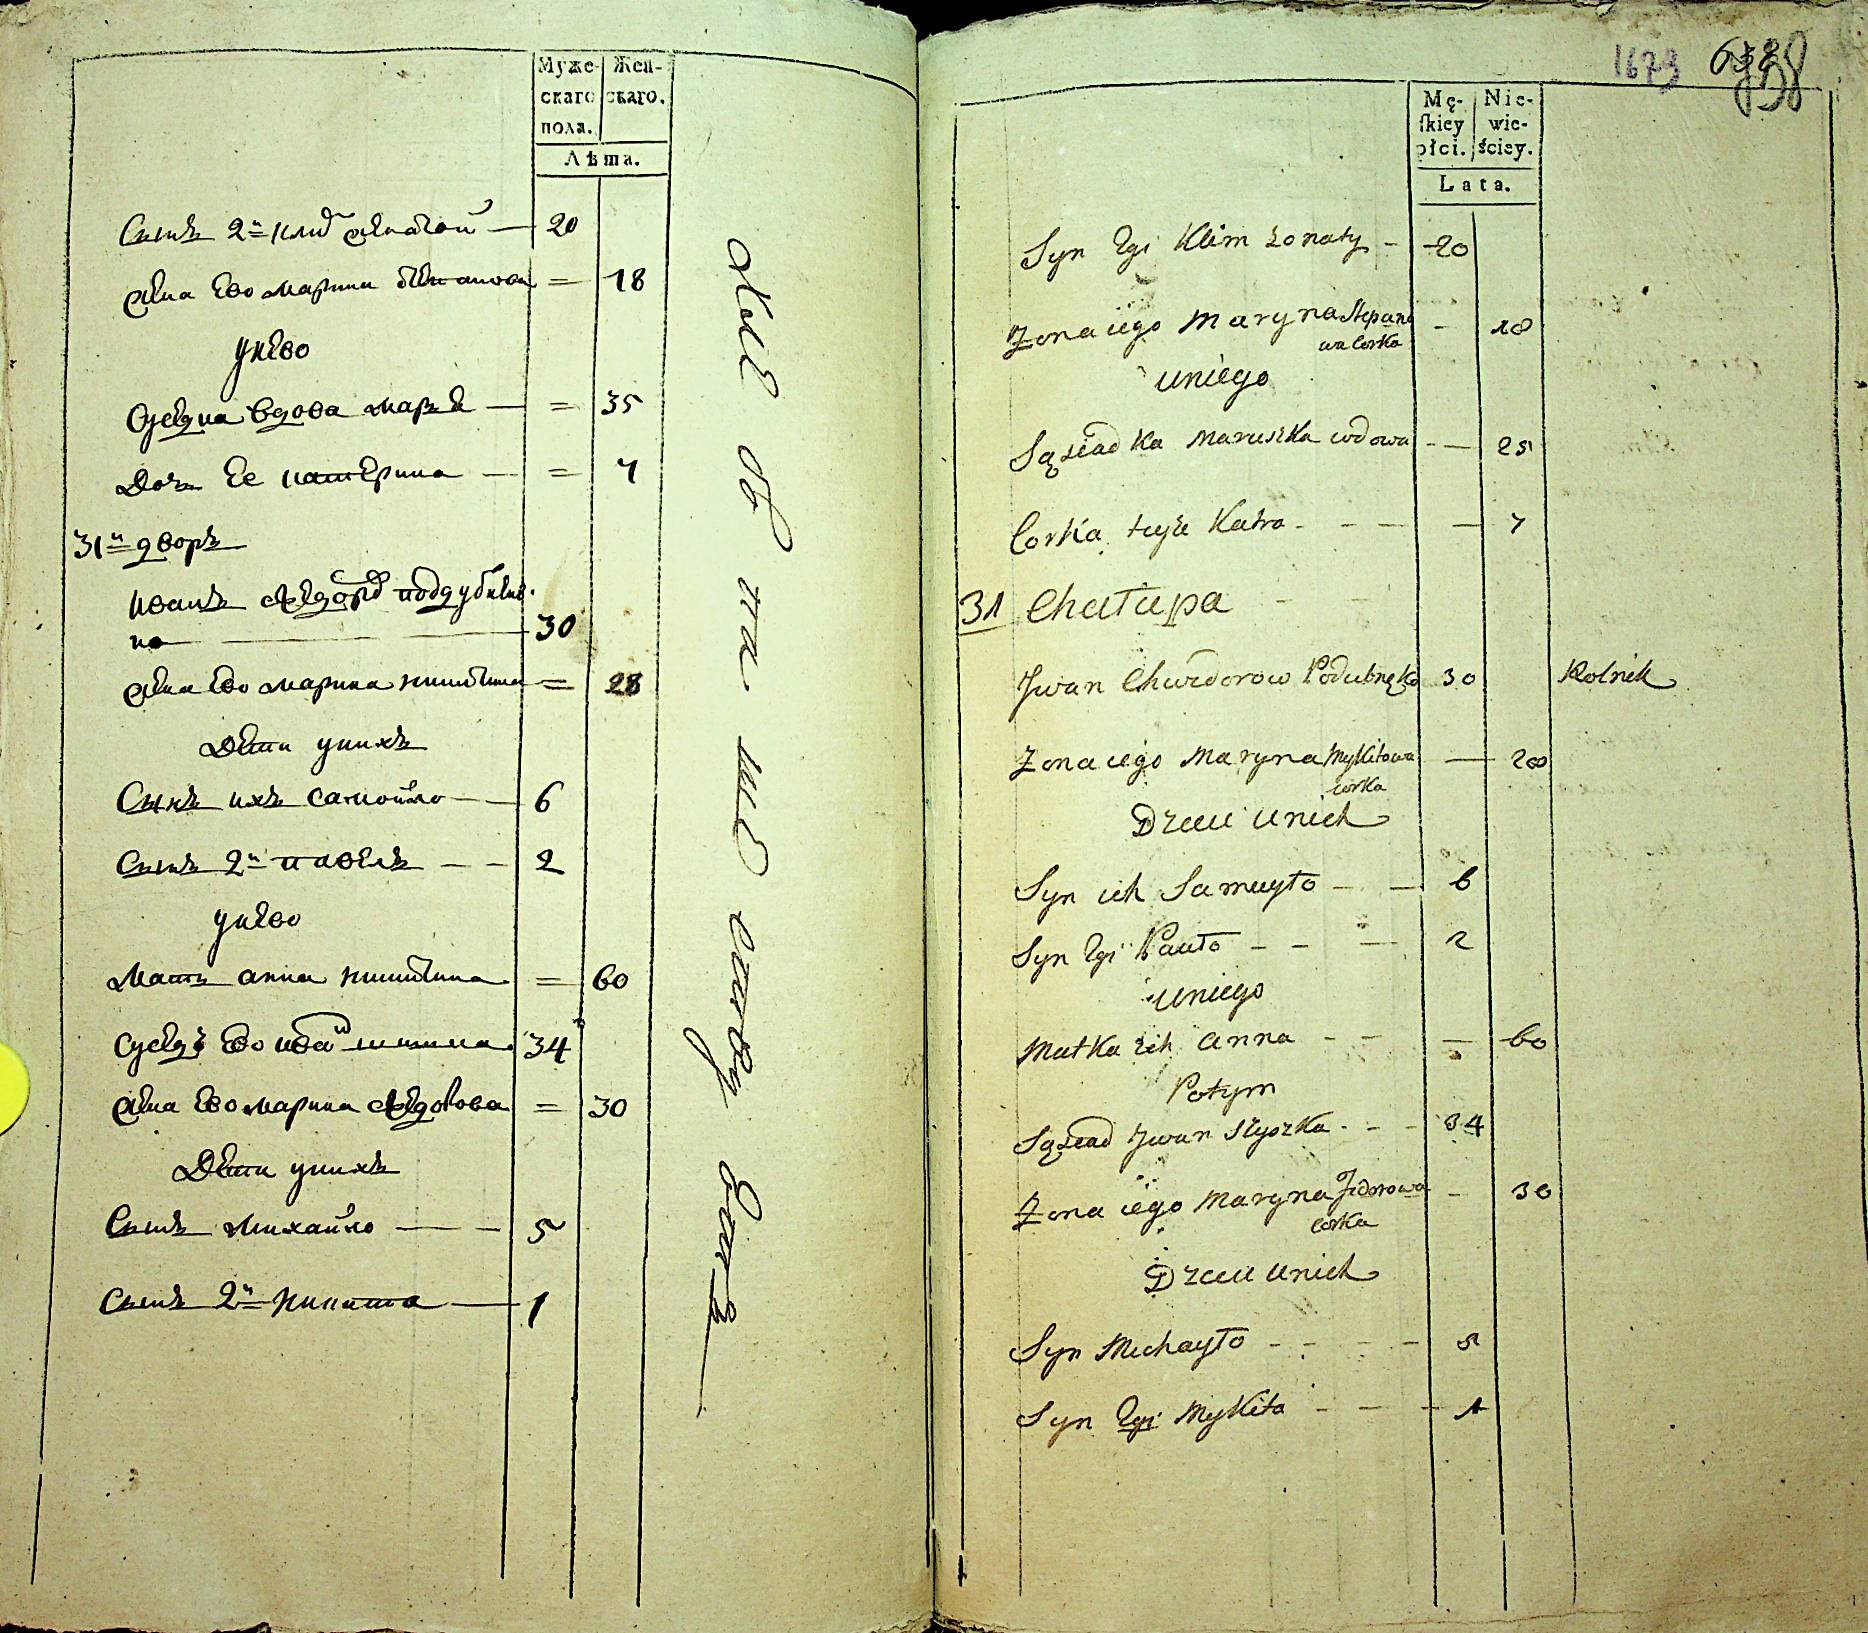 Муже- Жен-
скаго скаго.
пола.
Лѣта.
Сынъ 2й клим женатой — 20
жена ево марина степанова = 18
унево
Суседка вдова марья — = 35
Дочь ее катерина — = 7
31й дворъ
иванъ федоров поддубнен.
ко — 30
жена ево марина никитина = 28
Дети унихъ
Сынъ ихъ самойло — 6
Сынъ 2й павелъ — 2
унево
мать анна никитина = 60
суседъ ево иван 34
жена ево марина федорова = 30
Дети унихъ
Сынъ михайло — 5
Сынъ 2й никита — 1
1679 658
738
Mę- Nie-
skiey wie-
płci. ściey.
Lata.
Syn 2gi Klim żonaty - 20
Żona iego Maryna Stepano - 18
wa Corka
uniego
Sąsiadka Maruszka wdowa - — 25
Corka teyże Katra - - — — 7
31 Chałupa
Jwan Chwedorow Podubnęko 30 Rolnik
Żona iego Maryna Mykitowa — 28
corka
Dzieci unich
Syn ich Samuyło - — 6
Syn 2gi Pauło - - — 2
uniego
Matka ich Anna - - — 60
Potym
Sąsiad Jwan Szyszka - - - 34
Żona iego Maryna Fedorowa - 30
corka
Dzieci unich
Syn Michayło - - - - 5
Syn 2gi Mykita - - - 1